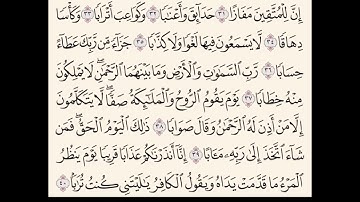 إِنَّ لِلْمُتَّقِينَ مَفَازًا ۝٣١ حَدَآئِقَ وَأَعْنَٰبًا ۝٣٢ وَكَوَاعِبَ أَتْرَابًا ۝٣٣ وَكَأْسًا
دِهَاقًا ۝٣٤ لَّا يَسْمَعُونَ فِيهَا لَغْوًا وَلَا كِذَّٰبًا ۝٣٥ جَزَآءً مِّن رَّبِّكَ عَطَآءً
حِسَابًا ۝٣٦ رَّبِّ ٱلسَّمَٰوَٰتِ وَٱلْأَرْضِ وَمَا بَيْنَهُمَا ٱلرَّحْمَٰنِ ۖ لَا يَمْلِكُونَ
مِنْهُ خِطَابًا ۝٣٧ يَوْمَ يَقُومُ ٱلرُّوحُ وَٱلْمَلَٰٓئِكَةُ صَفًّا ۖ لَّا يَتَكَلَّمُونَ
إِلَّا مَنْ أَذِنَ لَهُ ٱلرَّحْمَٰنُ وَقَالَ صَوَابًا ۝٣٨ ذَٰلِكَ ٱلْيَوْمُ ٱلْحَقُّ ۖ فَمَن
شَآءَ ٱتَّخَذَ إِلَىٰ رَبِّهِۦ مَـَٔابًا ۝٣٩ إِنَّآ أَنذَرْنَٰكُمْ عَذَابًا قَرِيبًا يَوْمَ يَنظُرُ
ٱلْمَرْءُ مَا قَدَّمَتْ يَدَاهُ وَيَقُولُ ٱلْكَافِرُ يَٰلَيْتَنِى كُنتُ تُرَٰبًۢا ۝٤٠